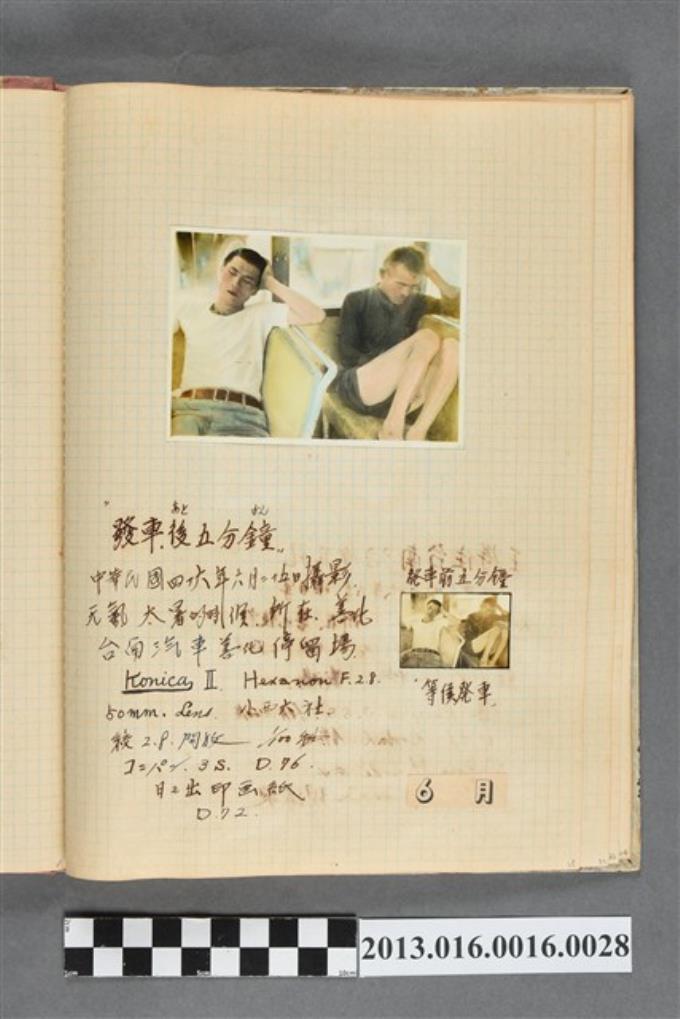 あと
"發車後五分鐘"
中華民國四十六年六月二十五日攝影
天氣 大暑的時候 所在 善化
台南汽車善化停留場
Konica II. Hexanon F. 2.8.
50mm. Lens. 小西六社.
2.8.
3 S. D.76.
日之出印画紙
D.72.
發車前五分鐘
"等候發車"
6 月
2013.016.0016.0028